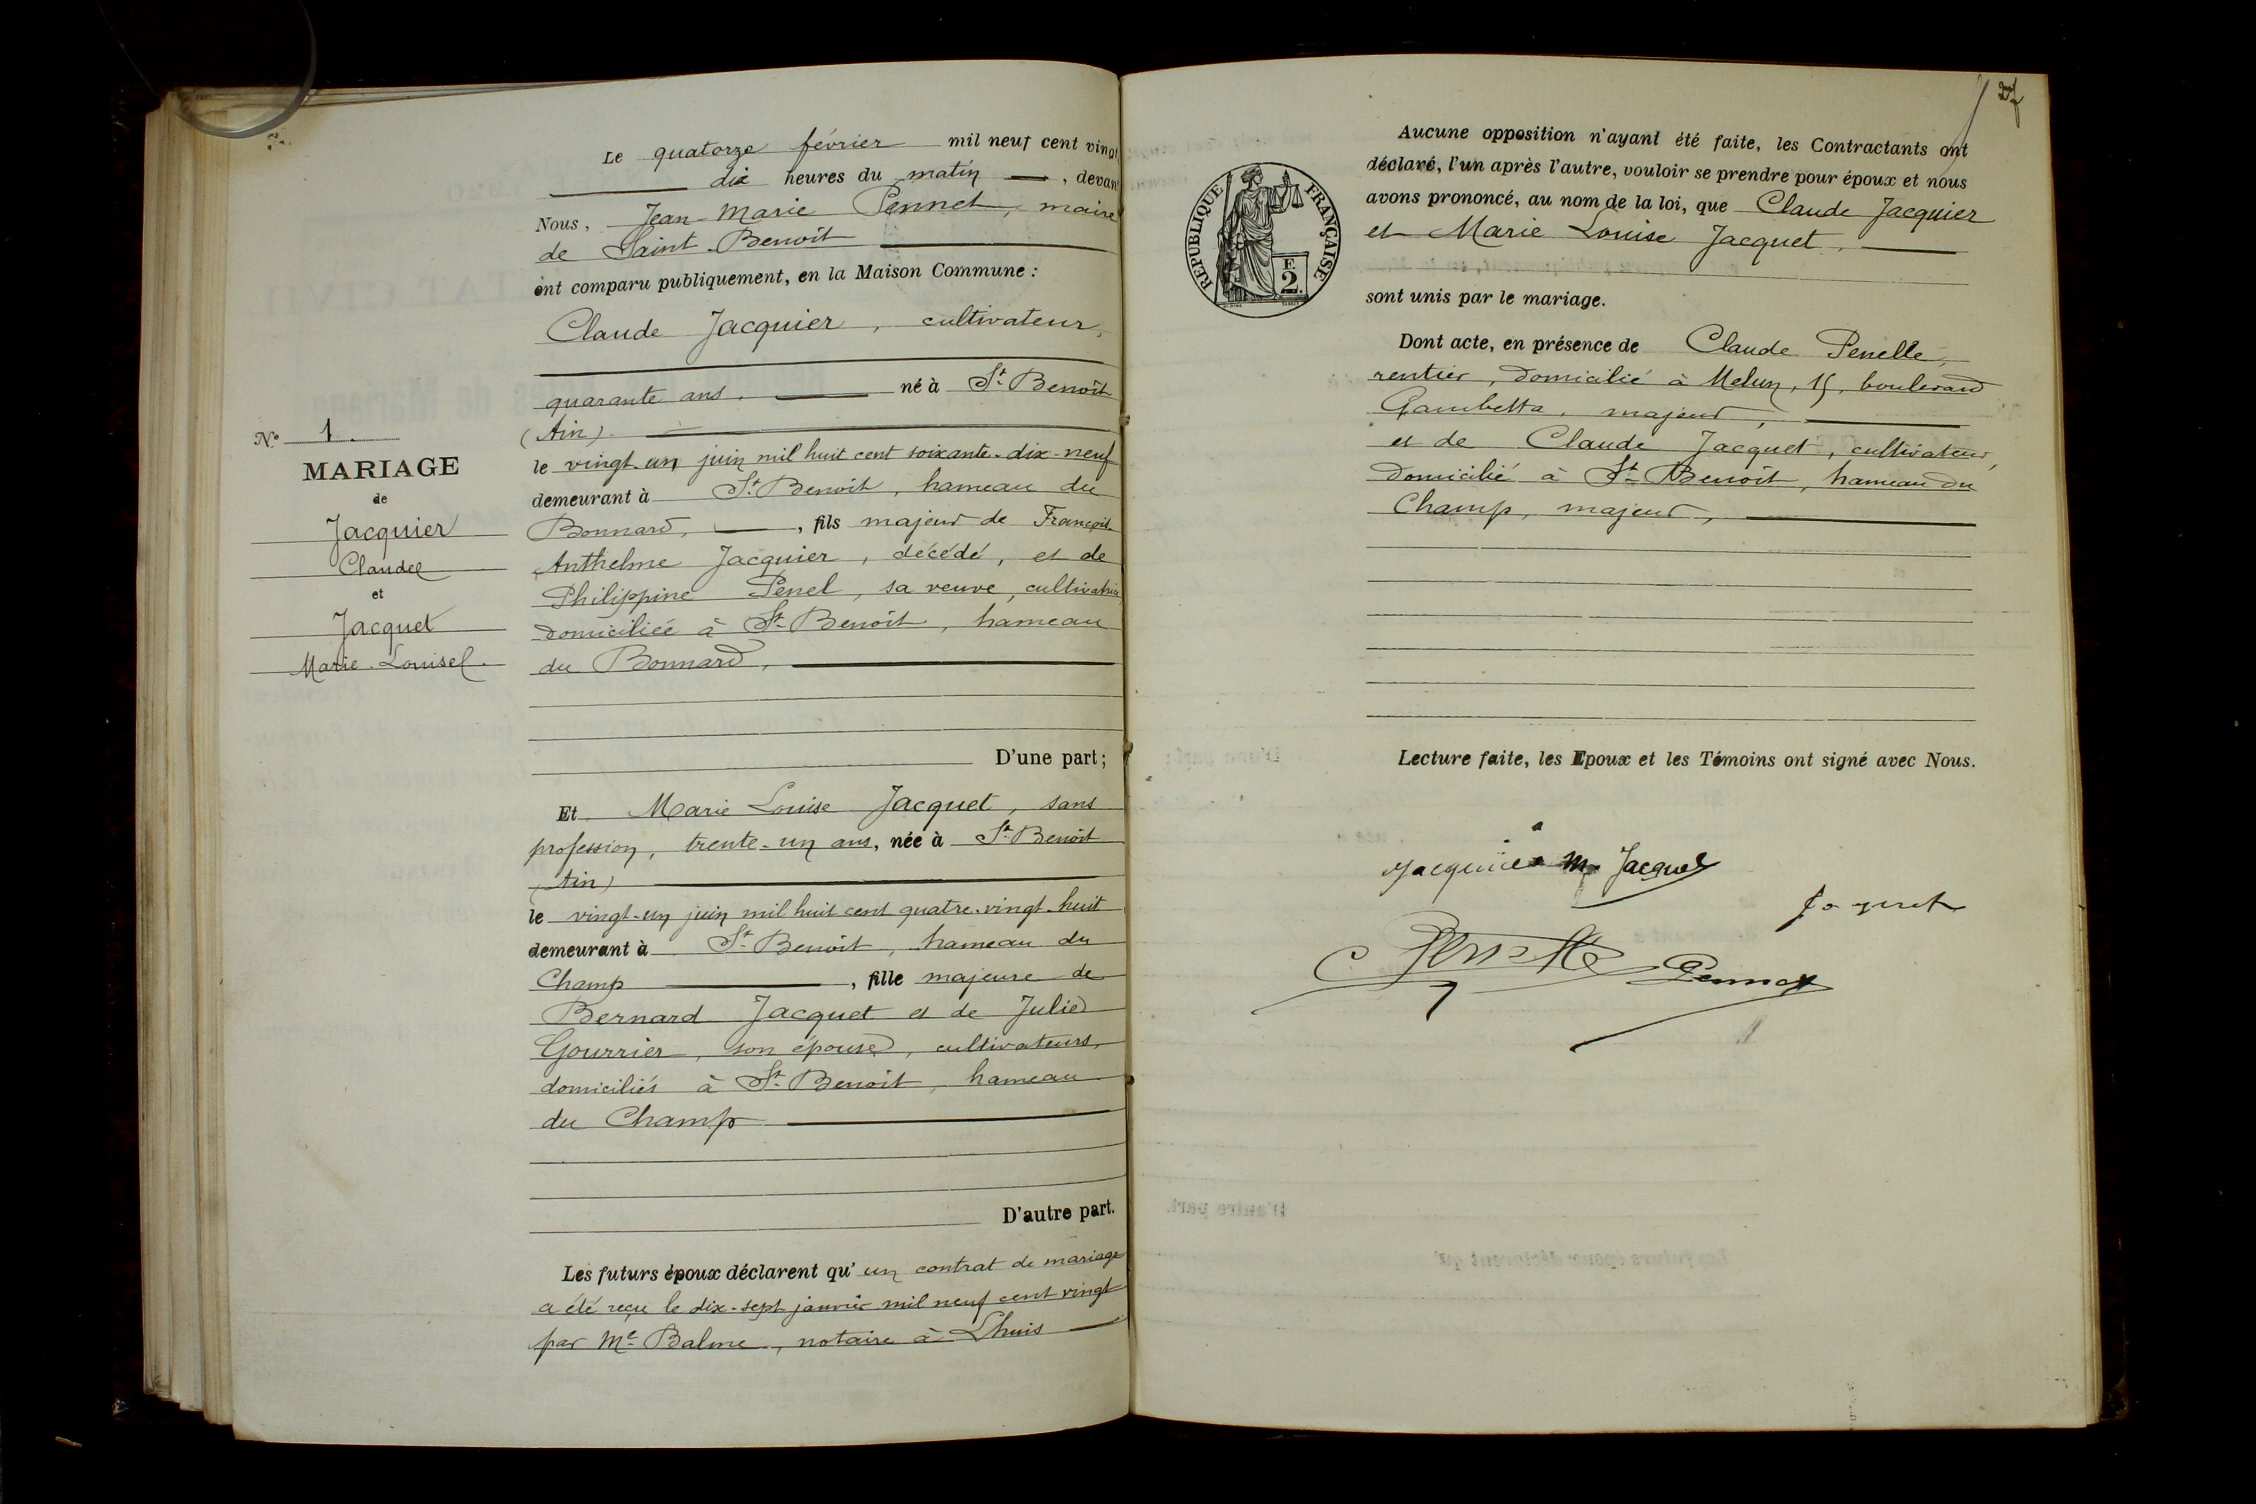 N° 1.
MARIAGE
de
Jacquier
Claude
et
Jacquet
Marie-Louise.
Le quatorze février mil neuf cent vingt
dix heures du matin, devant
Nous, Jean-Marie Pennet, maire
de Saint-Benoît
ont comparu publiquement, en la Maison Commune :
Claude Jacquier, cultivateur,
quarante ans, né à St-Benoît
(Ain)
le vingt-un juin mil huit cent soixante-dix-neuf
demeurant à St-Benoît, hameau du
Bonnard, fils majeur de François-
Anthelme Jacquier, décédé, et de
Philippine Penel, sa veuve, cultivatrice,
domiciliée à St-Benoît, hameau
du Bonnard,
D'une part ;
Et Marie Louise Jacquet, sans
profession, trente-un ans, née à St-Benoît
(Ain)
le vingt-un juin mil huit cent quatre-vingt-huit
demeurant à St-Benoît, hameau du
Champ, fille majeure de
Bernard Jacquet et de Julie
Gourrier, son épouse, cultivateurs,
domiciliés à St-Benoît, hameau
du Champ
D'autre part.
Les futurs époux déclarent qu'un contrat de mariage
a été reçu le dix-sept janvier mil neuf cent vingt
par Me Balme, notaire à Lhuis
27
RÉPUBLIQUE FRANÇAISE
F.
2.
Aucune opposition n'ayant été faite, les Contractants ont
déclaré, l'un après l'autre, vouloir se prendre pour époux et nous
avons prononcé, au nom de la loi, que Claude Jacquier
et Marie Louise Jacquet.
sont unis par le mariage.
Dont acte, en présence de Claude Penelle,
rentier, domicilié à Melun, 15, boulevard
Gambetta, majeur,
et de Claude Jacquet, cultivateur,
domicilié à St-Benoît, hameau du
Champ, majeur,
Lecture faite, les Epoux et les Témoins ont signé avec Nous.
Jacquier M. Jacquet
Jaquet
C Penelle Pennet